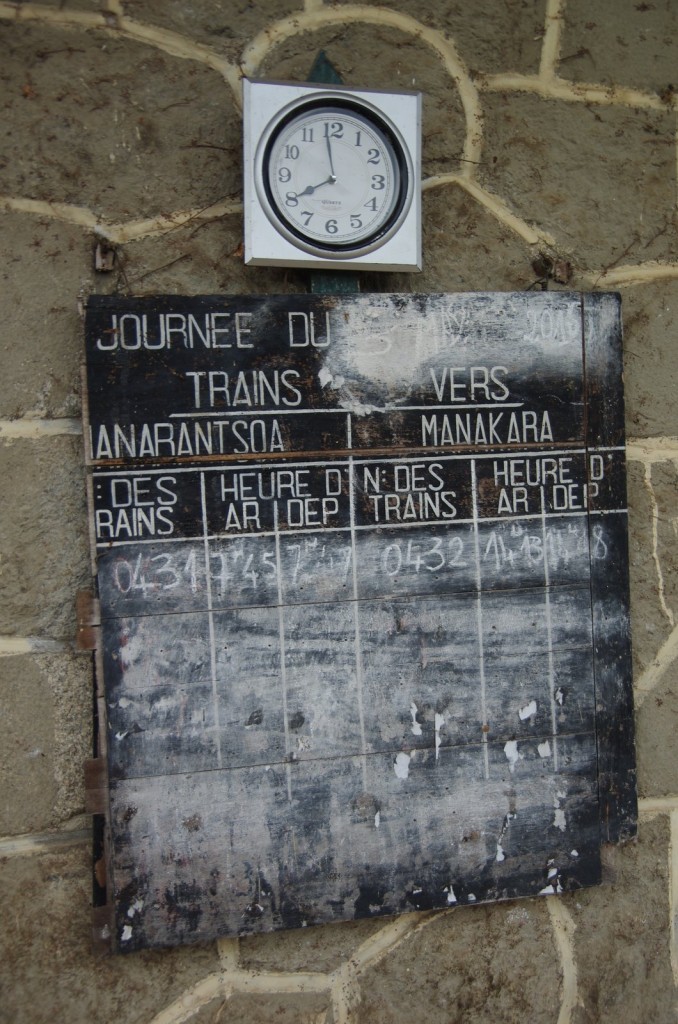 12 1 2 3 4 5 6 7 8 9 10 11
JOURNEE DU
TRAINS VERS
ANARANTSOA MANAKARA
: DES HEURE D' N: DES HEURE D'
RAINS AR DEP TRAINS AR DEP
0431 7H45 0432